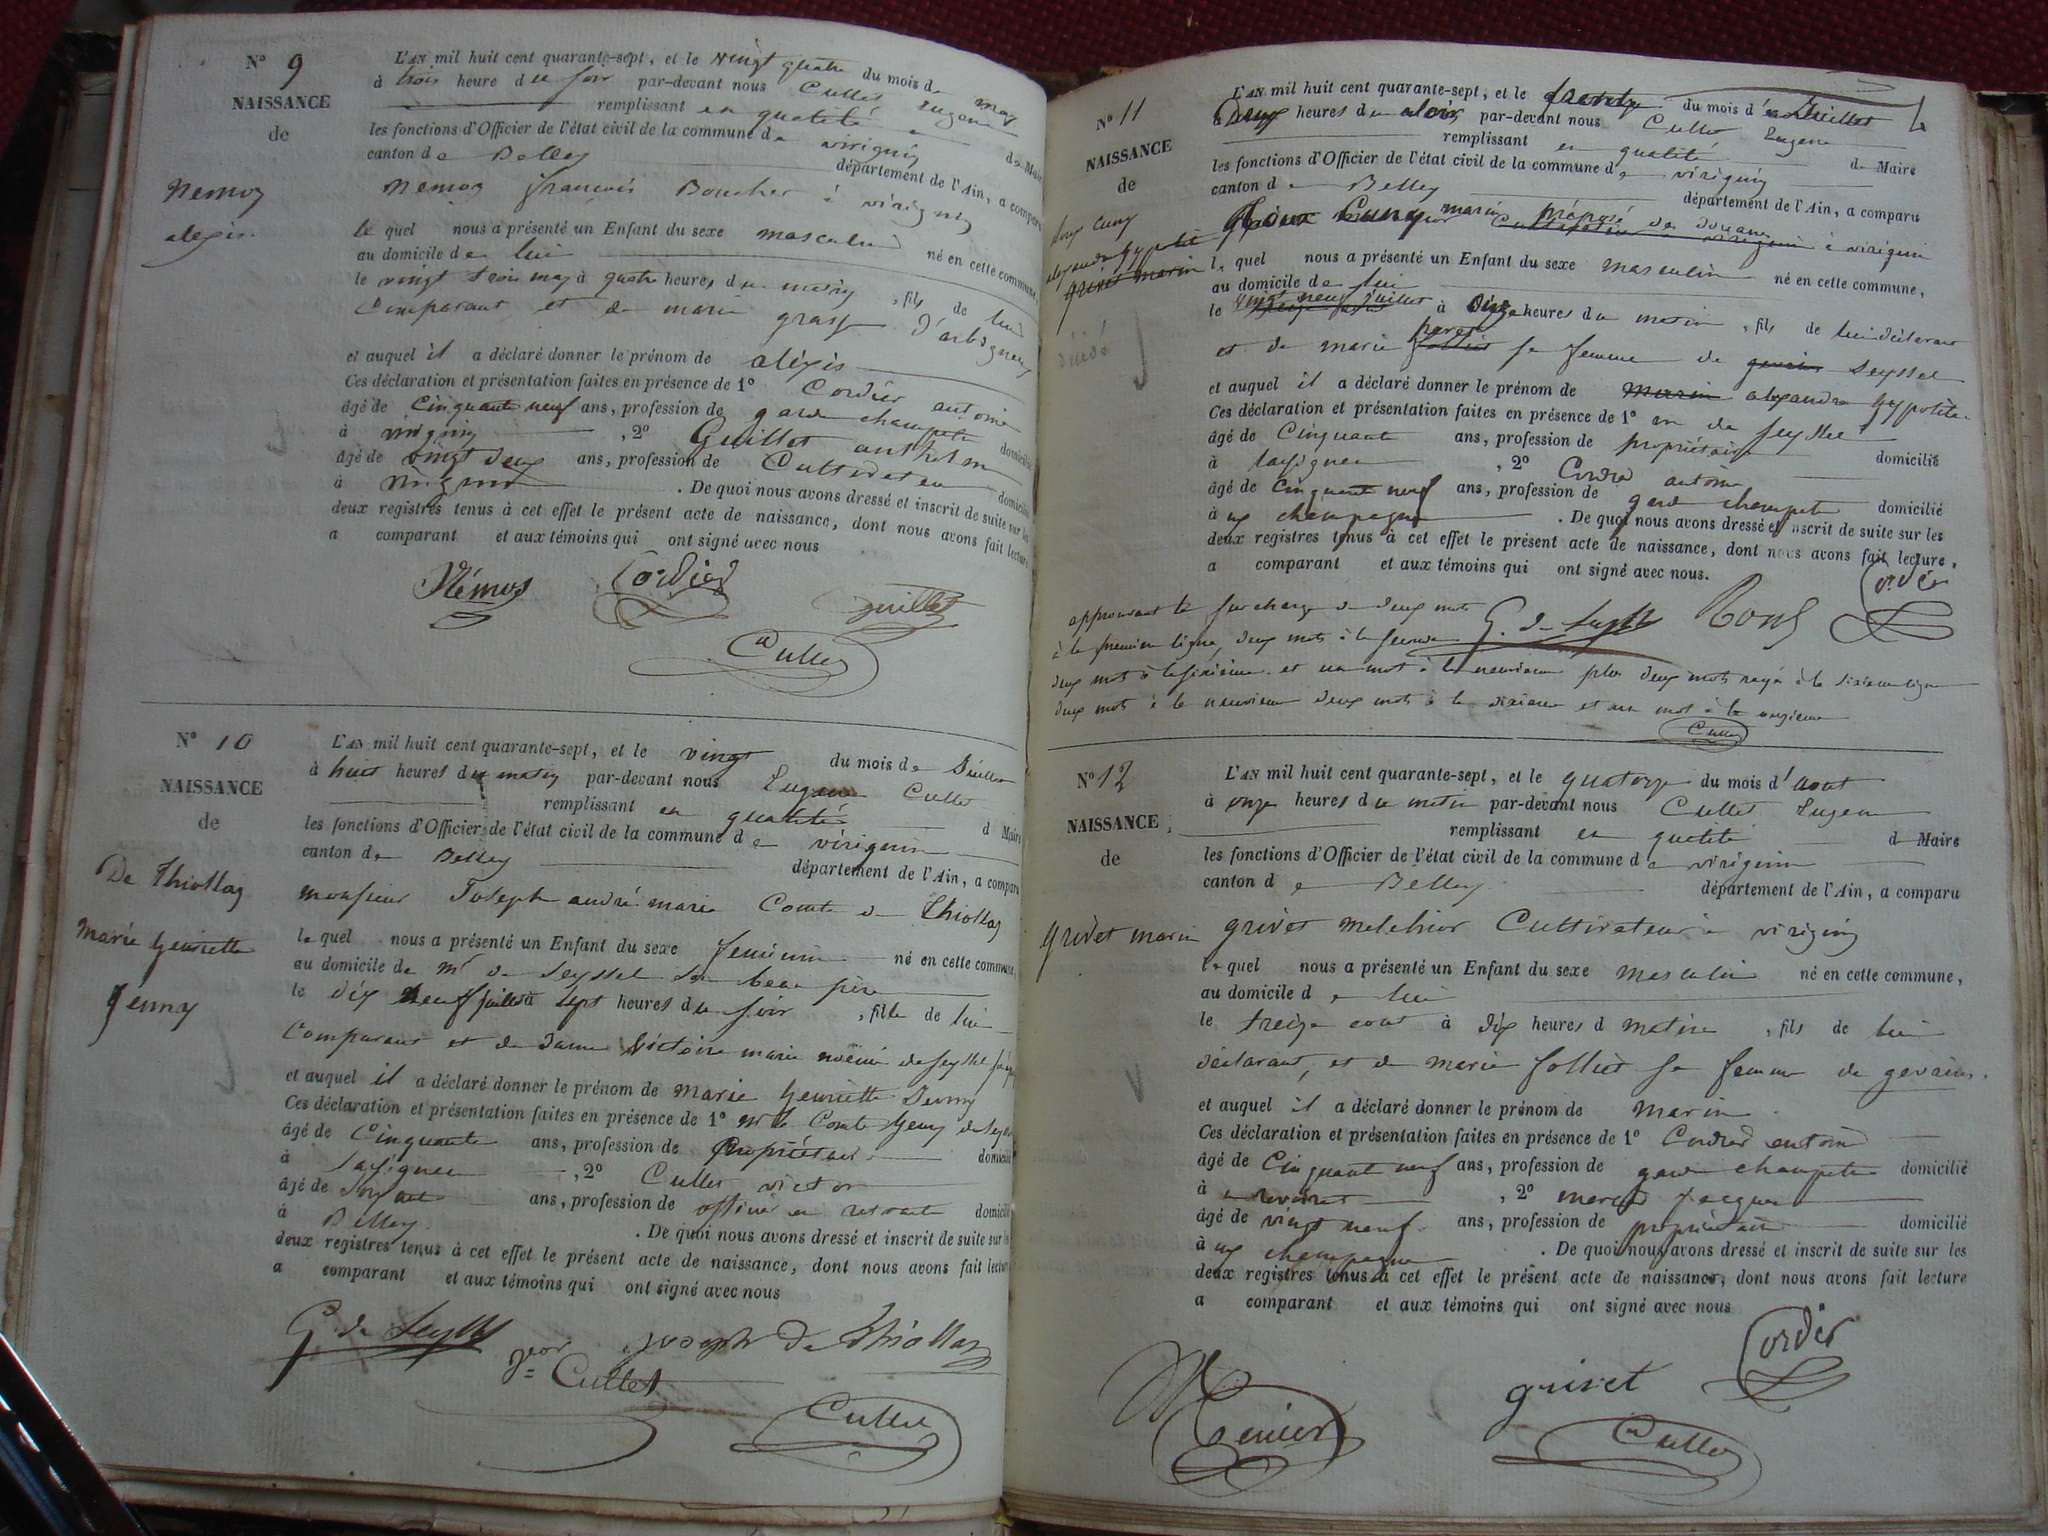 N° 9
NAISSANCE
de
Nemoz
alexis
L'AN mil huit cent quarante-sept, et le vingt quatre du mois de may
à trois heure du soir par-devant nous Cullet Eugene
remplissant en qualité de Maire
les fonctions d'Officier de l'état civil de la commune de virignin
canton de Belley département de l'Ain, a comparu
Nemoz françois Boucher à virignin
le quel nous a présenté un Enfant du sexe masculin né en cette commune,
au domicile de lui
le vingt trois may à quatre heures du matin, fils de lui
Comparant et de marie d'arbigneu
et auquel il a déclaré donner le prénom de aléxis
Ces déclaration et présentation faites en présence de 1° Cordier antoine
âgé de Cinquante neuf ans, profession de garde champetre domicilié
à virignin, 2° Guillet anthelme
âgé de vingt deux ans, profession de Cultivateur domicilié
à virignin. De quoi nous avons dressé et inscrit de suite sur les
deux registres tenus à cet effet le présent acte de naissance, dont nous avons fait lecture
a comparant et aux témoins qui ont signé avec nous
Némos Cordier guillet
Cullet
N° 10
NAISSANCE
de
De Thiollaz
marie henriette
Jenny
L'AN mil huit cent quarante-sept, et le vingt du mois de Juillet
à huit heures du matin par-devant nous Eugene Cullet
remplissant en qualité d Maire
les fonctions d'Officier de l'état civil de la commune de virignin
canton de Belley département de l'Ain, a comparu
monsieur Joseph andré marie Comte de Thiollaz
le quel nous a présenté un Enfant du sexe feminin né en cette commune,
au domicile de mr de Seyssel son beau père
le dix neuf juillet à sept heures du soir, fille de lui
Comparant et de Dame victoire marie noëmie de Seyssel
et auquel il a déclaré donner le prénom de marie henriette Jenny
Ces déclaration et présentation faites en présence de 1° mr le Comte
âgé de Cinquante ans, profession de propriétaire domicilié
à, 2° Cullet victor
âgé de ans, profession de officier en retraite domicilié
à Belley. De quoi nous avons dressé et inscrit de suite sur les
deux registres tenus à cet effet le présent acte de naissance, dont nous avons fait lecture
a comparant et aux témoins qui ont signé avec nous
G. de Seyssel joseph De Thiollaz
Cullet
Cullet
N° 11
NAISSANCE
de
Cuny
alexandre hypolite
grivet marin
L'AN mil huit cent quarante-sept, et le trente du mois de Juillet
à Deux heures du soir par-devant nous Cullet Eugene
remplissant en qualité de Maire
les fonctions d'Officier de l'état civil de la commune de virignin
canton de Belley département de l'Ain, a comparu
Cuny marin préposé des Douanes à virignin
le quel nous a présenté un Enfant du sexe masculin né en cette commune,
au domicile de lui
le vingt neuf Juillet à heures du matin, fils de lui déclarant
et de marie sa femme de Seyssel
et auquel il a déclaré donner le prénom de marin alexandre hypolite
Ces déclaration et présentation faites en présence de 1° mr de Seyssel
âgé de Cinquante ans, profession de propriétaire domicilié
à, 2° Cordier antoine
âgé de Cinquante neuf ans, profession de garde champetre domicilié
à champagne. De quoi nous avons dressé et inscrit de suite sur les
deux registres tenus à cet effet le présent acte de naissance, dont nous avons fait lecture,
a comparant et aux témoins qui ont signé avec nous.
Cordier
approuvant la surcharge de deux mots
à la premiere ligne, deux mots à la seconde G. de Seyssel
deux mots à la sixieme et un mot à la neuvieme plus deux mots rayés à la sixieme ligne
deux mots à la neuvieme deux mots à la dixieme et un mot à la onzieme
Cullet
N° 12
NAISSANCE
de
grivet marin
L'AN mil huit cent quarante-sept, et le quatorze du mois d'Aout
à onze heures du matin par-devant nous Cullet Eugene
remplissant en qualité d Maire
les fonctions d'Officier de l'état civil de la commune de virignin
canton de Belley département de l'Ain, a comparu
grivet melchior Cultivateur à virignin
le quel nous a présenté un Enfant du sexe masculin né en cette commune,
au domicile de lui
le treize aout à dix heures d matin, fils de lui
déclarant, et de marie folliet sa femme de gevrin
et auquel il a déclaré donner le prénom de marin
Ces déclaration et présentation faites en présence de 1° Cordier antoine
âgé de Cinquante neuf ans, profession de garde champetre domicilié
à, 2° Jacques
âgé de vingt neuf ans, profession de propriétaire domicilié
à champagne. De quoi nous avons dressé et inscrit de suite sur les
deux registres tenus à cet effet le présent acte de naissance, dont nous avons fait lecture
a comparant et aux témoins qui ont signé avec nous
Cordier
grivet
Cullet